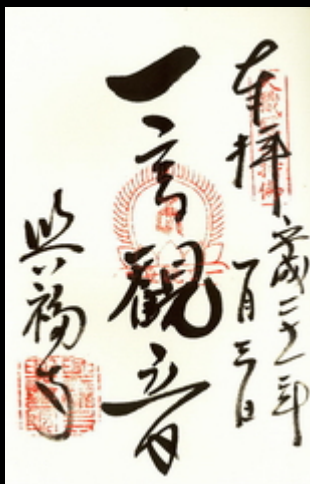 奉拝
平成二十一年
一月三日
一言観音
興福寺